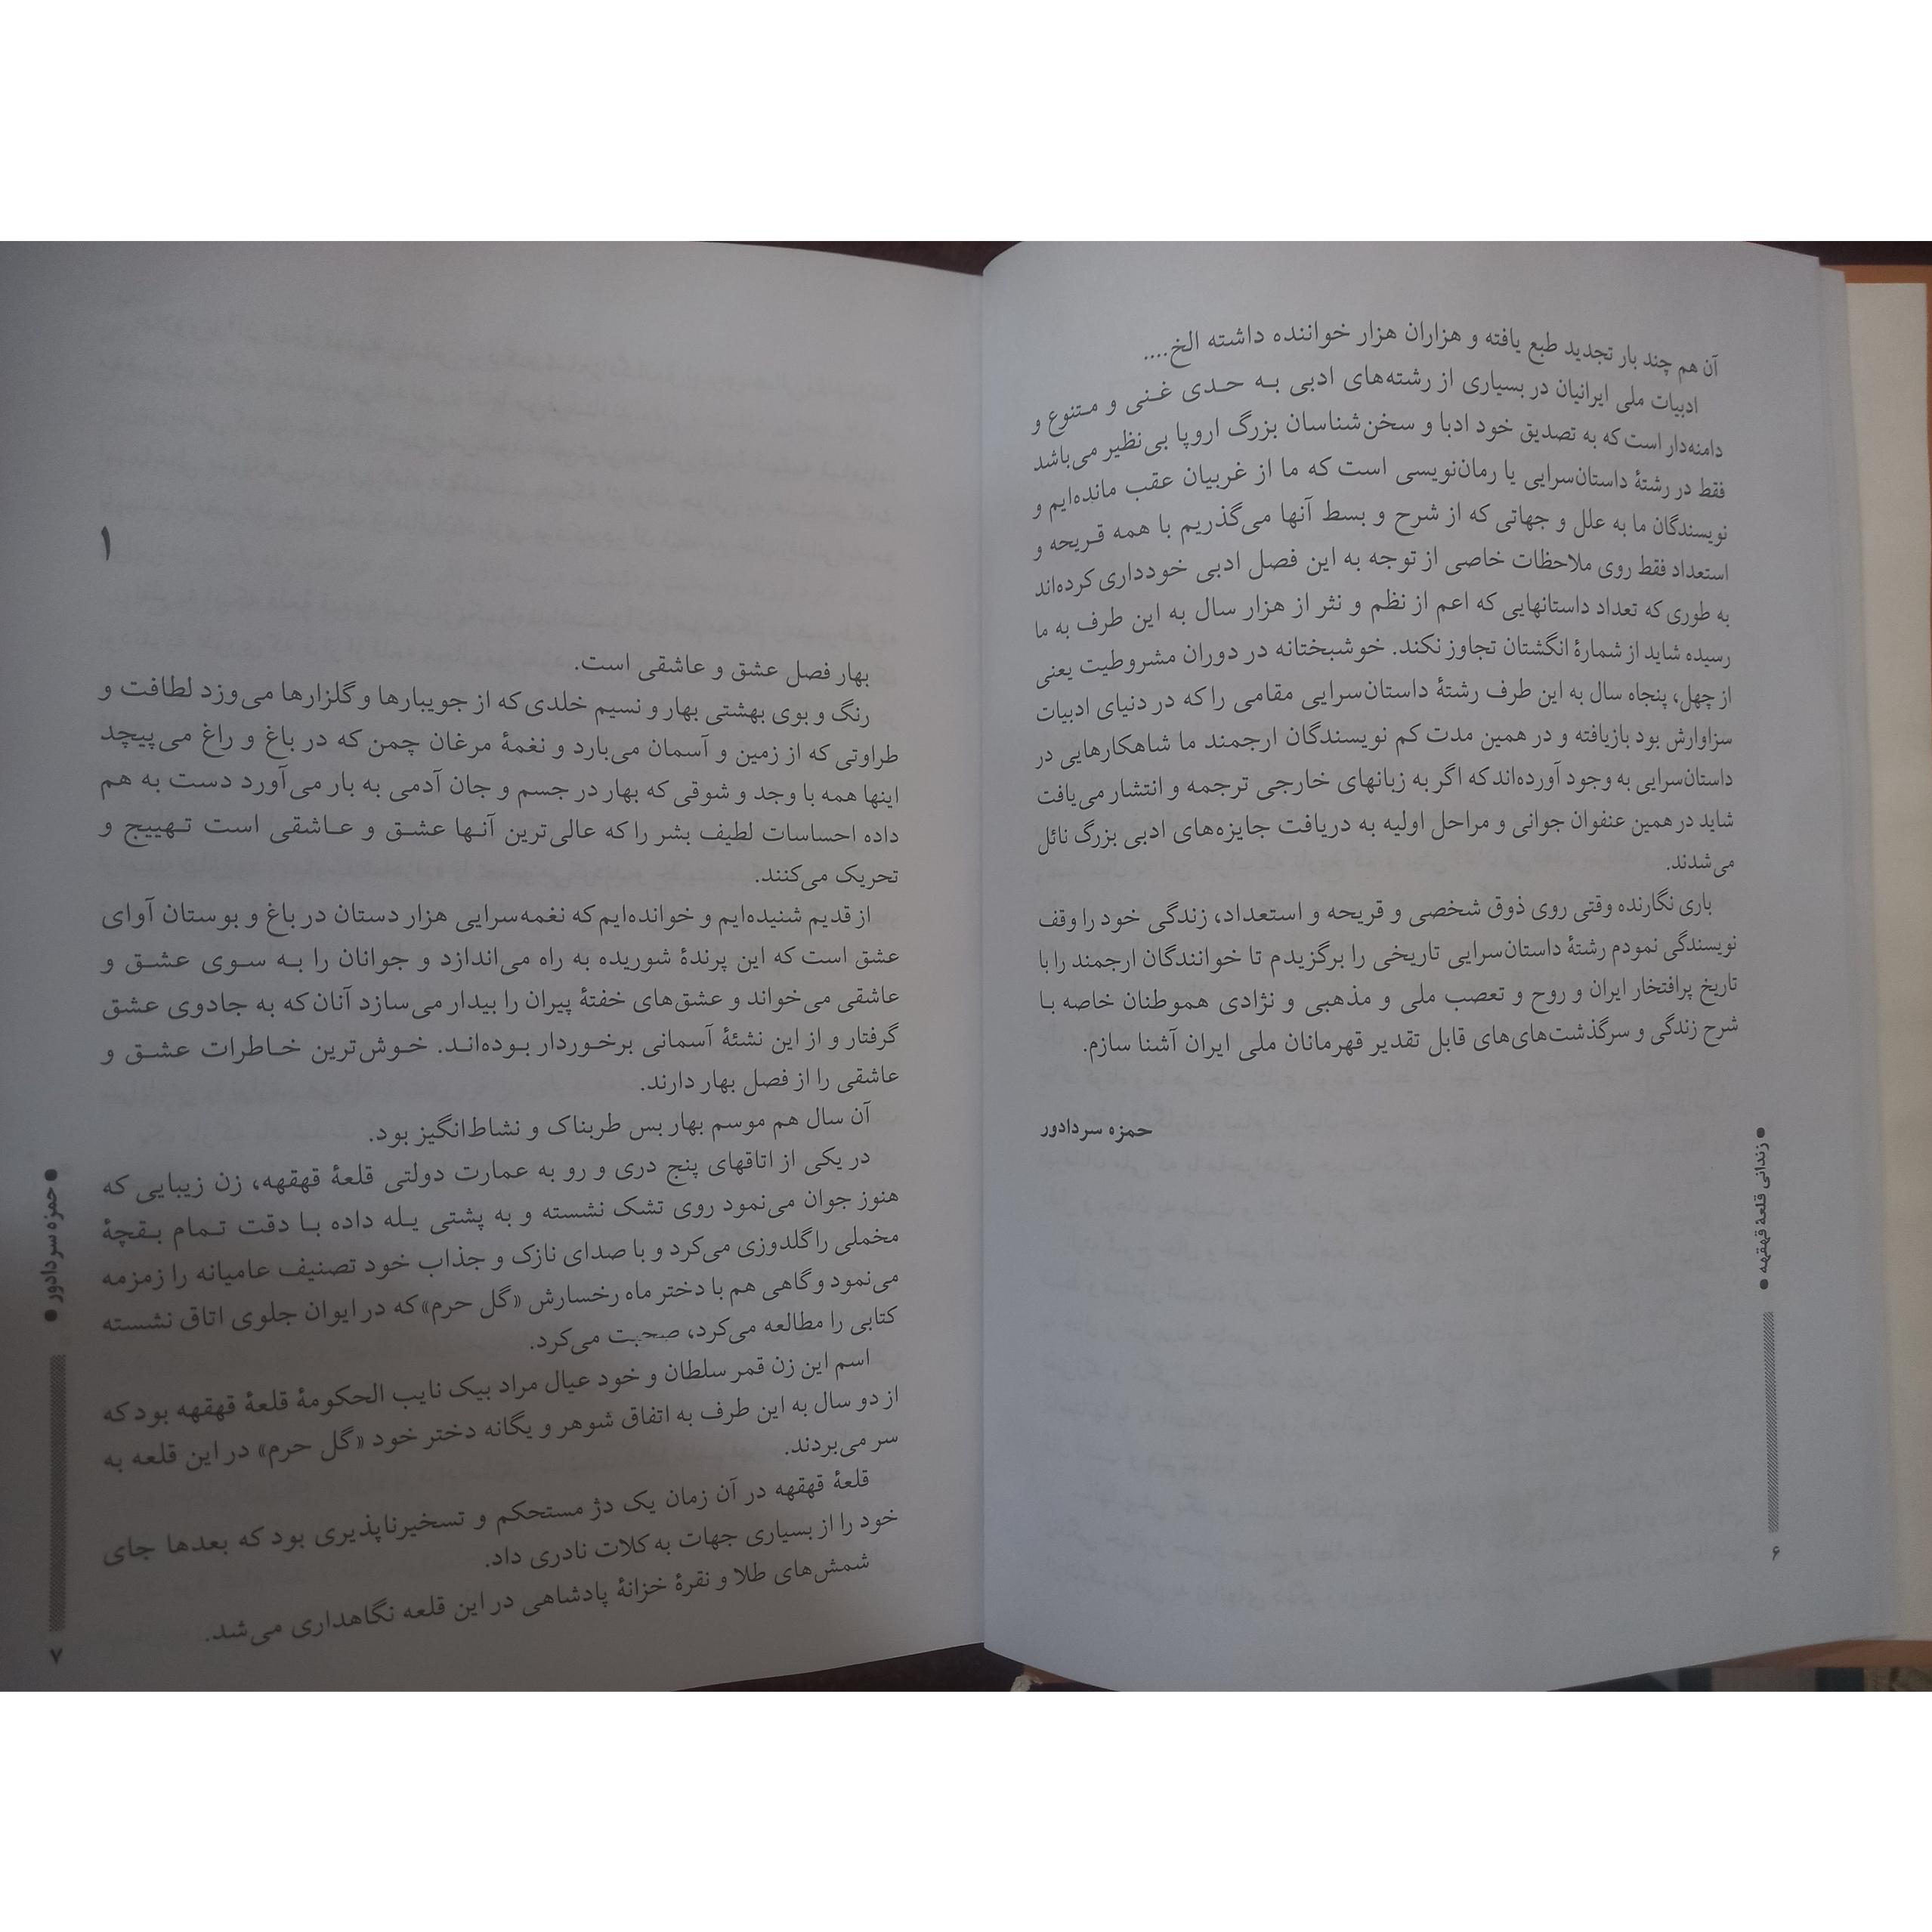 آن هم چند بار تجدید طبع یافته و هزاران هزار خواننده داشته الخ....
ادبیات ملی ایرانیان در بسیاری از رشته‌های ادبی به حدی غنی و متنوع و
دامنه‌دار است که به تصدیق خود ادبا و سخن‌شناسان بزرگ اروپا بی‌نظیر می‌باشد
فقط در رشتهٔ داستان‌سرایی یا رمان‌نویسی است که ما از غربیان عقب مانده‌ایم و
نویسندگان ما به علل و جهاتی که از شرح و بسط آنها می‌گذریم با همه قریحه و
استعداد فقط روی ملاحظات خاصی از توجه به این فصل ادبی خودداری کرده‌اند
به طوری که تعداد داستانهایی که اعم از نظم و نثر از هزار سال به این طرف به ما
رسیده شاید از شمارهٔ انگشتان تجاوز نکند. خوشبختانه در دوران مشروطیت یعنی
از چهل، پنجاه سال به این طرف رشتهٔ داستان‌سرایی مقامی را که در دنیای ادبیات
سزاوارش بود بازیافته و در همین مدت کم نویسندگان ارجمند ما شاهکارهایی در
داستان‌سرایی به وجود آورده‌اند که اگر به زبانهای خارجی ترجمه و انتشار می‌یافت
شاید در همین عنفوان جوانی و مراحل اولیه به دریافت جایزه‌های ادبی بزرگ نائل
می‌شدند.
باری نگارنده وقتی روی ذوق شخصی و قریحه و استعداد، زندگی خود را وقف
نویسندگی نمودم رشتهٔ داستان‌سرایی تاریخی را برگزیدم تا خوانندگان ارجمند را با
تاریخ پرافتخار ایران و روح و تعصب ملی و مذهبی و نژادی هموطنان خاصه با
شرح زندگی و سرگذشت‌های‌های قابل تقدیر قهرمانان ملی ایران آشنا سازم.
حمزه سردادور
زندانی قلعهٔ قهقهه
۶
۱
بهار فصل عشق و عاشقی است.
رنگ و بوی بهشتی بهار و نسیم خلدی که از جویبارها و گلزارها می‌وزد لطافت و
طراوتی که از زمین و آسمان می‌بارد و نغمهٔ مرغان چمن که در باغ و راغ می‌پیچد
اینها همه با وجد و شوقی که بهار در جسم و جان آدمی به بار می‌آورد دست به هم
داده احساسات لطیف بشر را که عالی‌ترین آنها عشق و عاشقی است تهییج و
تحریک می‌کنند.
از قدیم شنیده‌ایم و خوانده‌ایم که نغمه‌سرایی هزار دستان در باغ و بوستان آوای
عشق است که این پرندهٔ شوریده به راه می‌اندازد و جوانان را به سوی عشق و
عاشقی می‌خواند و عشق‌های خفتهٔ پیران را بیدار می‌سازد آنان که به جادوی عشق
گرفتار و از این نشئهٔ آسمانی برخوردار بوده‌اند. خوش‌ترین خاطرات عشق و
عاشقی را از فصل بهار دارند.
آن سال هم موسم بهار بس طربناک و نشاط‌انگیز بود.
در یکی از اتاقهای پنج دری و رو به عمارت دولتی قلعهٔ قهقهه، زن زیبایی که
هنوز جوان می‌نمود روی تشک نشسته و به پشتی یله داده با دقت تمام بقچهٔ
مخملی را گلدوزی می‌کرد و با صدای نازک و جذاب خود تصنیف عامیانه را زمزمه
می‌نمود و گاهی هم با دختر ماه رخسارش «گل حرم» که در ایوان جلوی اتاق نشسته
کتابی را مطالعه می‌کرد، صحبت می‌کرد.
اسم این زن قمر سلطان و خود عیال مراد بیک نایب الحکومهٔ قلعهٔ قهقهه بود که
از دو سال به این طرف به اتفاق شوهر و یگانه دختر خود «گل حرم» در این قلعه به
سر می‌بردند.
قلعهٔ قهقهه در آن زمان یک دژ مستحکم و تسخیرناپذیری بود که بعدها جای
خود را از بسیاری جهات به کلات نادری داد.
شمش‌های طلا و نقرهٔ خزانهٔ پادشاهی در این قلعه نگاهداری می‌شد.
حمزه سردادور
۷